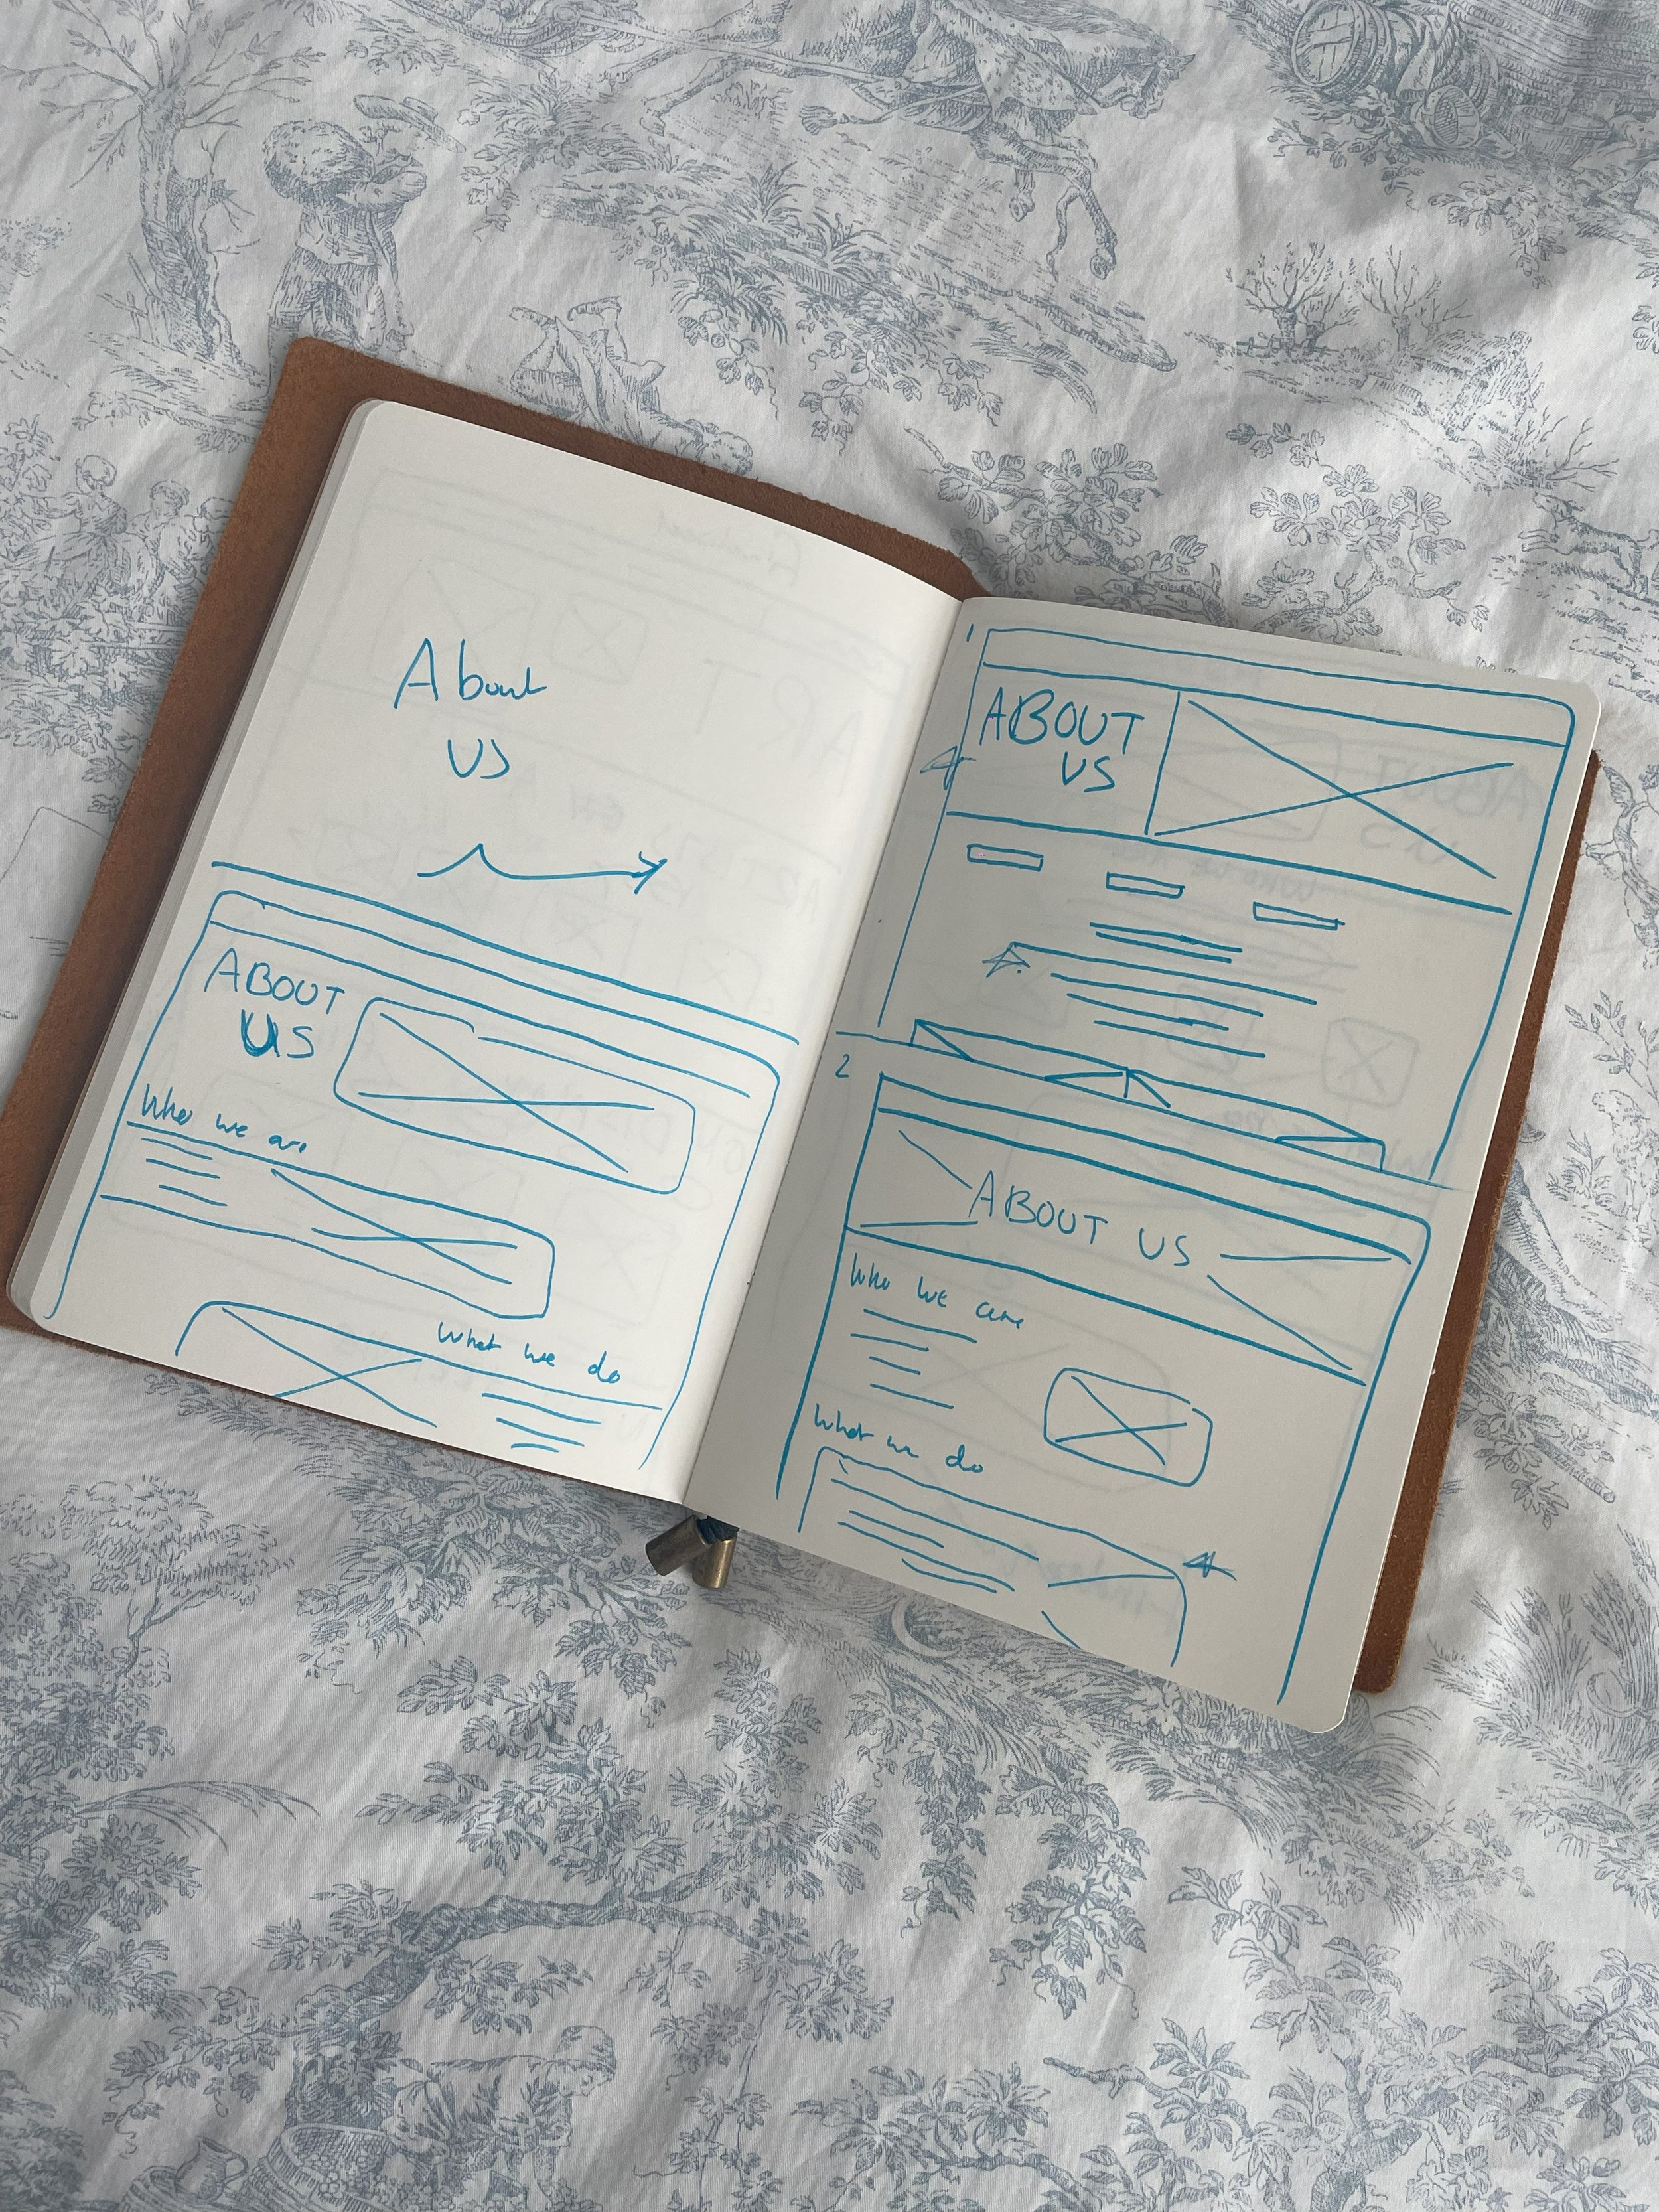 About
US
ABOUT
US
Who we are
What we do
1
ABOUT
US
2
ABOUT US
Who we are
What we do